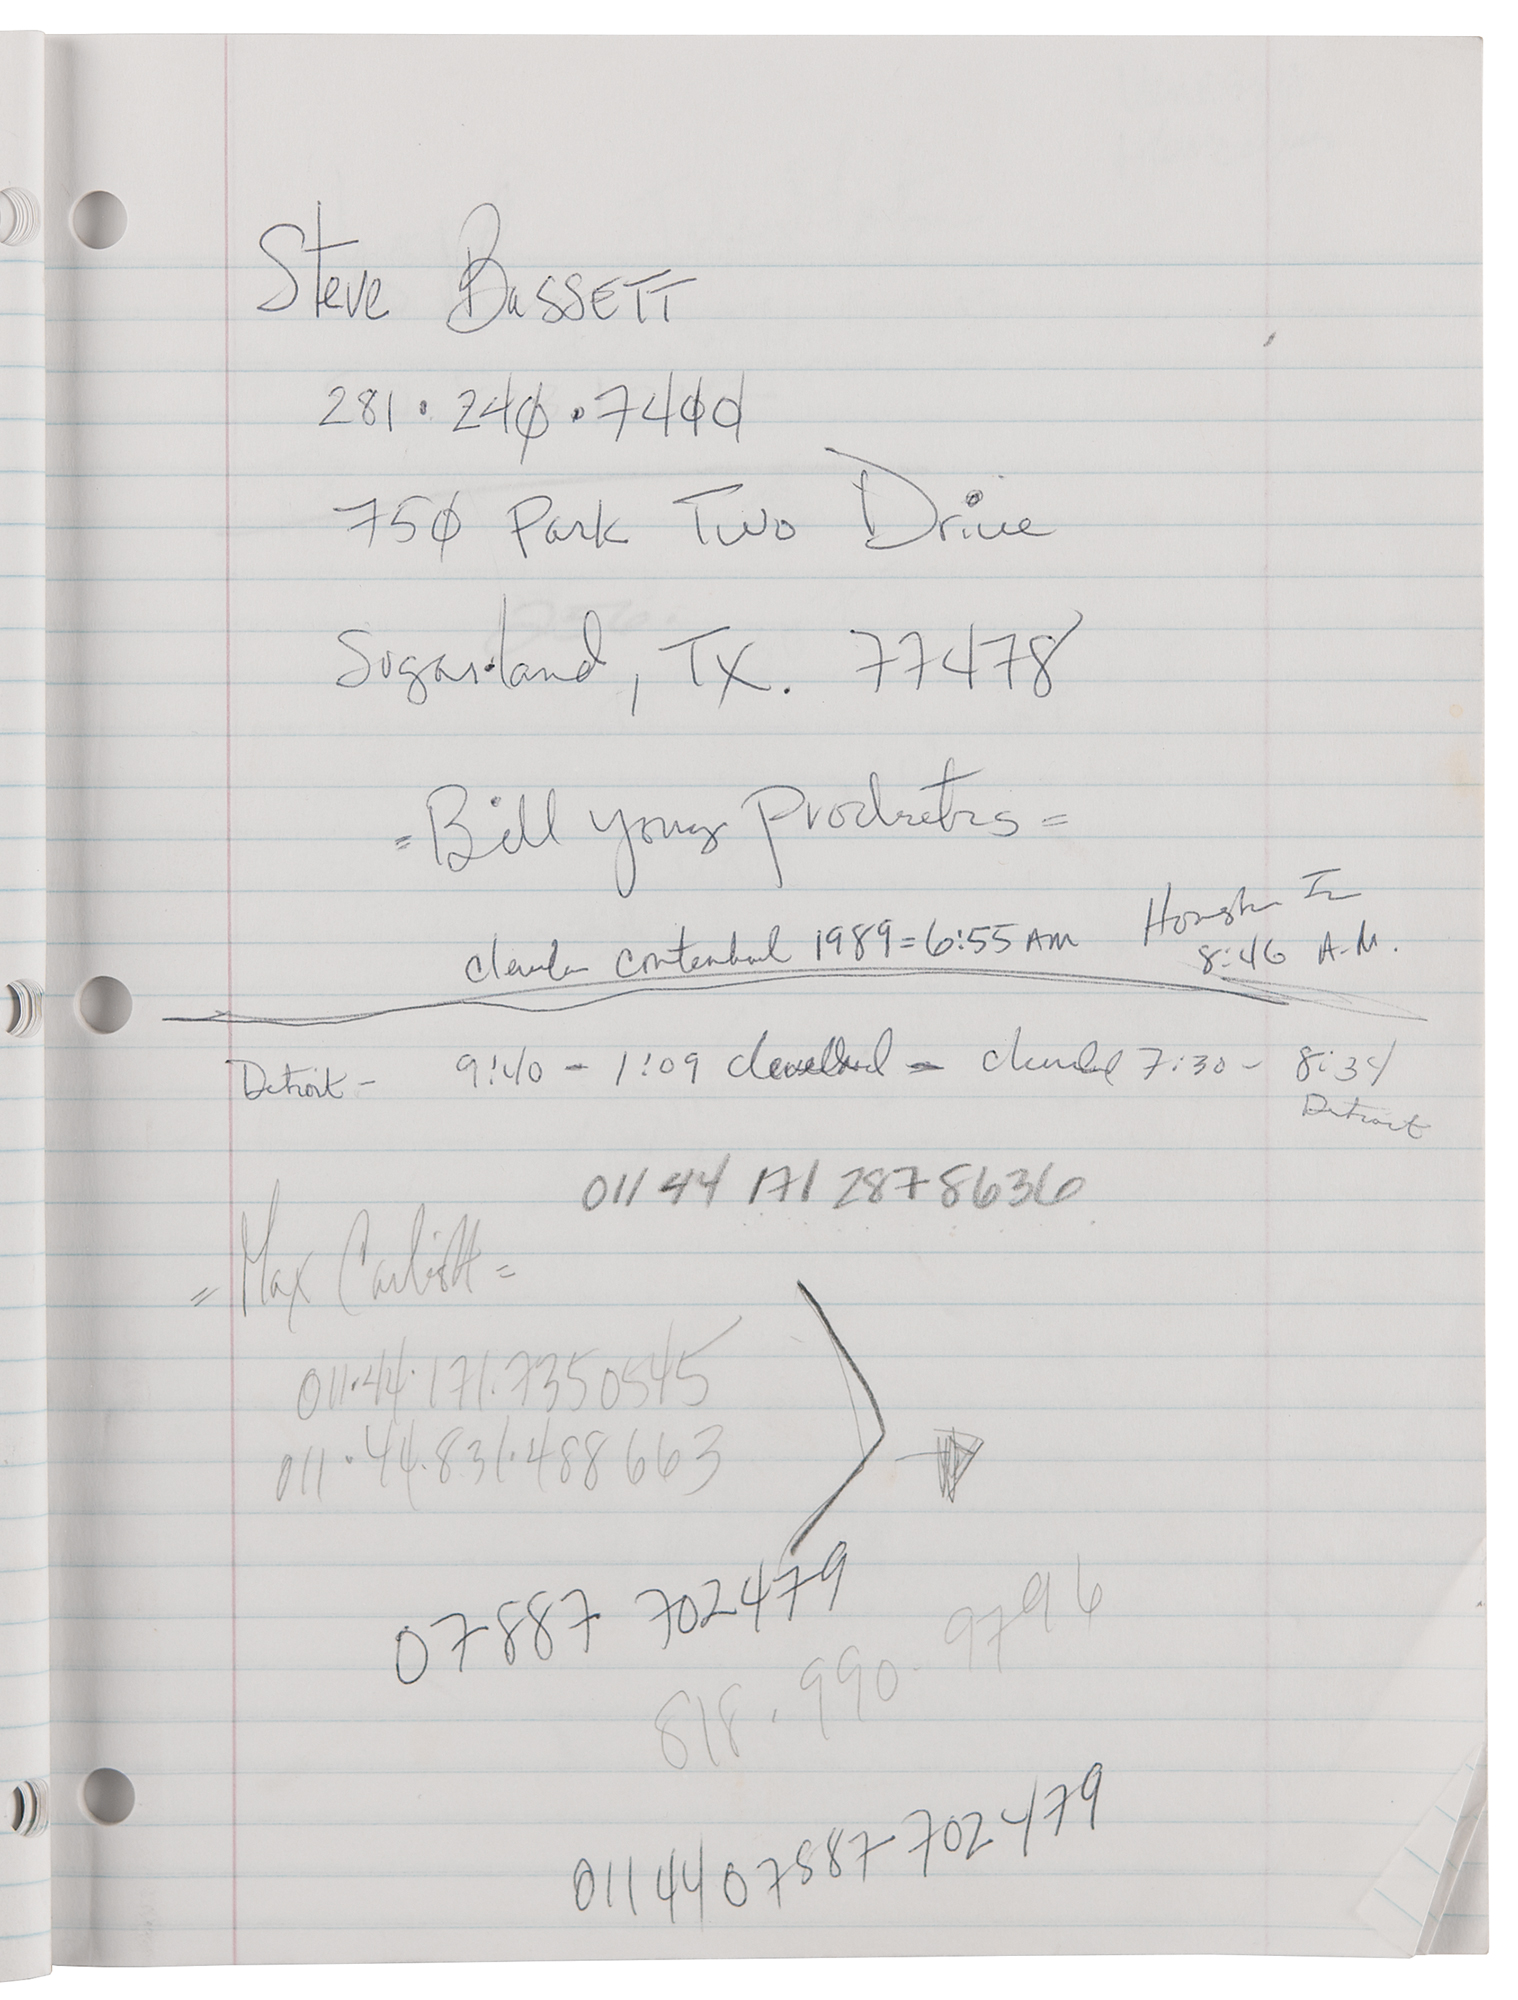 Steve BASSETT
281 · 240 · 7400
750 Park Two Drive
Sugarland, TX. 77478
= Bill Young Productns =
Houston In
1989 = 6:55 AM
8:46 A.M.
Detroit - 9:40 - 1:09 Cleveland = Cleveland 7:30 - 8:34
Detroit
011 44 171 287 8636
= Max Carlish =
011·44·171·7350545
011·44·831·488663
07887 702479
818·990·9796
011 44 07887 702479